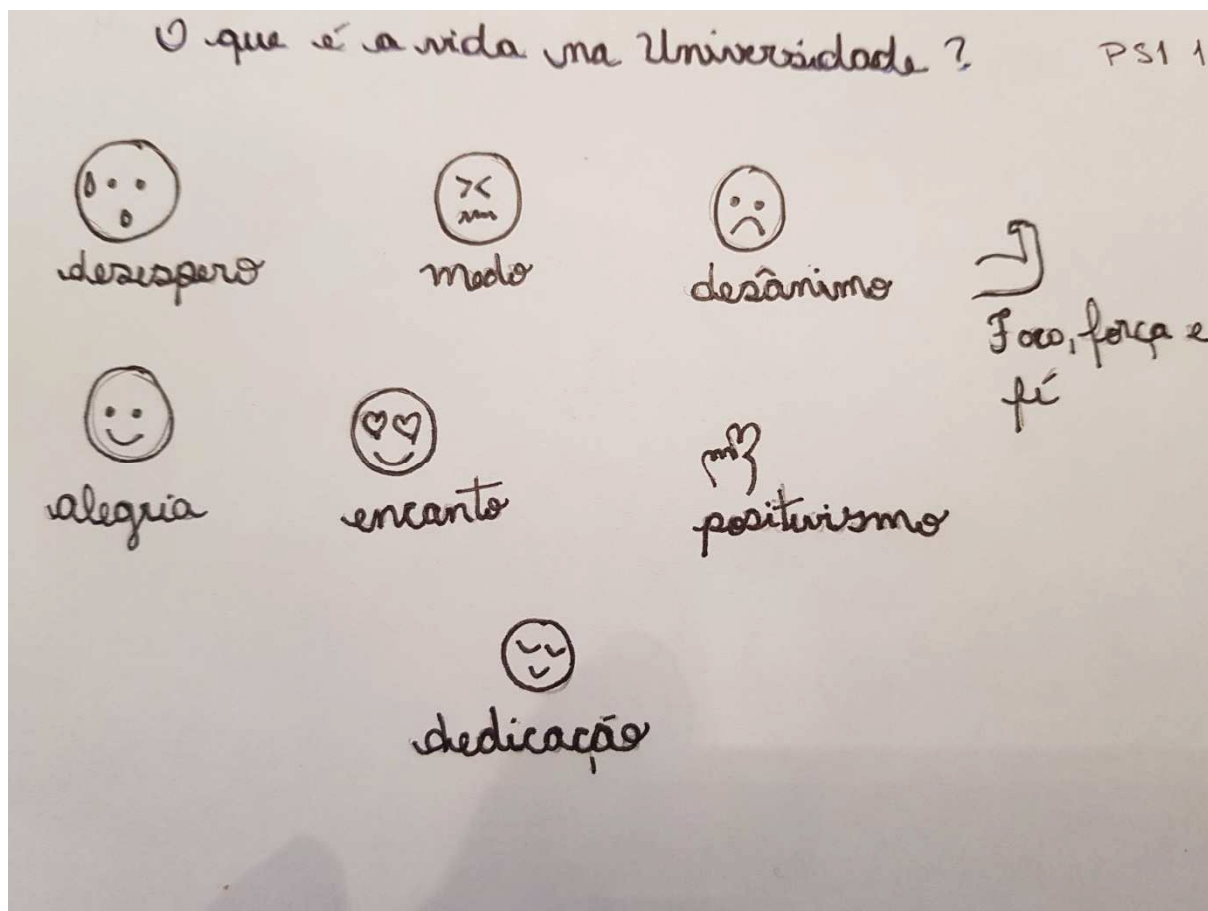 O que é a vida na Universidade ?
PSI 1
desespero
medo
desânimo
Foco, força e
fé
alegria
encanto
positivismo
dedicação